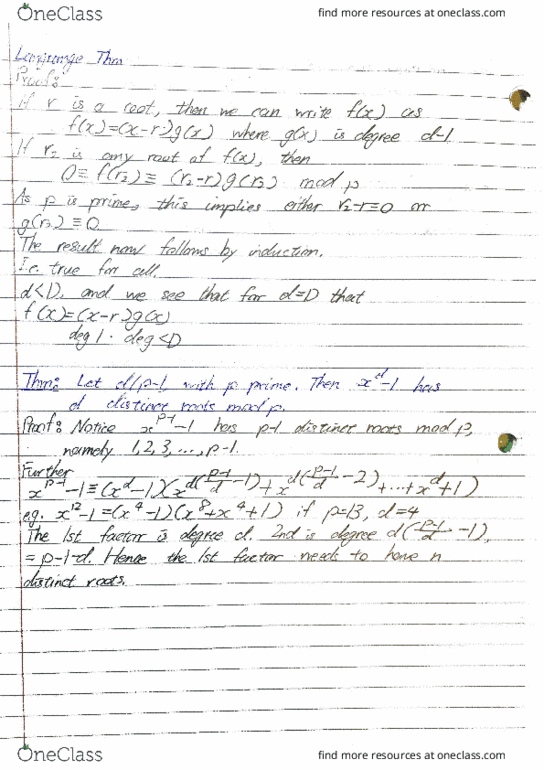 OneClass
find more resources at oneclass.com
Langrange Thm
Proof:
If r is a root, then we can write f(x) as
f(x)=(x-r)g(x) where g(x) is degree d-1
If r₂ is any root of f(x), then
0≡f(r₂)≡(r₂-r)g(r₂) mod p
As p is prime, this implies either r₂-r≡0 or
g(r₂)≡0
The result now follows by induction.
I.e. true for all.
d<D, and we see that for d=D that
f(x)=(x-r)g(x)
deg 1 · deg<D
Thm: Let d|p-1, with p prime. Then x^d-1 has
d distinct roots mod p.
Proof: Notice x^(p-1)-1 has p-1 distinct roots mod p,
namely 1,2,3,...,p-1.
Further
x^(p-1)-1≡(x^d-1)(x^(d((p-1)/d-1))+x^(d((p-1)/d-2))+...+x^d+1)
e.g. x^12-1=(x^4-1)(x^8+x^4+1) if p=13, d=4
The 1st factor is degree d. 2nd is degree d((p-1)/d-1),
=p-1-d. Hence the 1st factor needs to have n
distinct roots.
OneClass
find more resources at oneclass.com